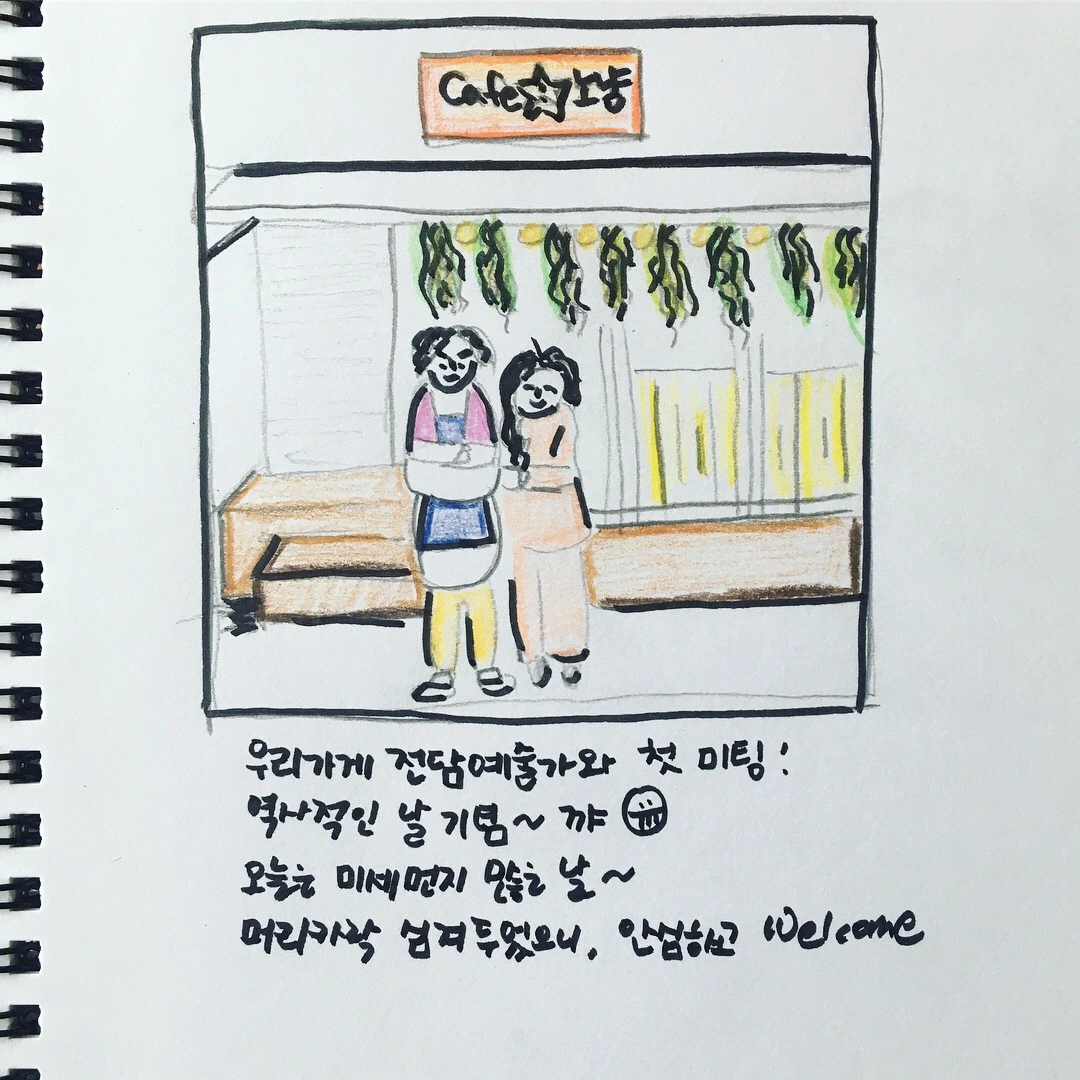 Cafe☆
우리가게 전담예술가와 첫 미팅!
역사적인 날 기념~ 꺄
오늘은 미세먼지 많은 날~
머리카락 안심하고 Welcome